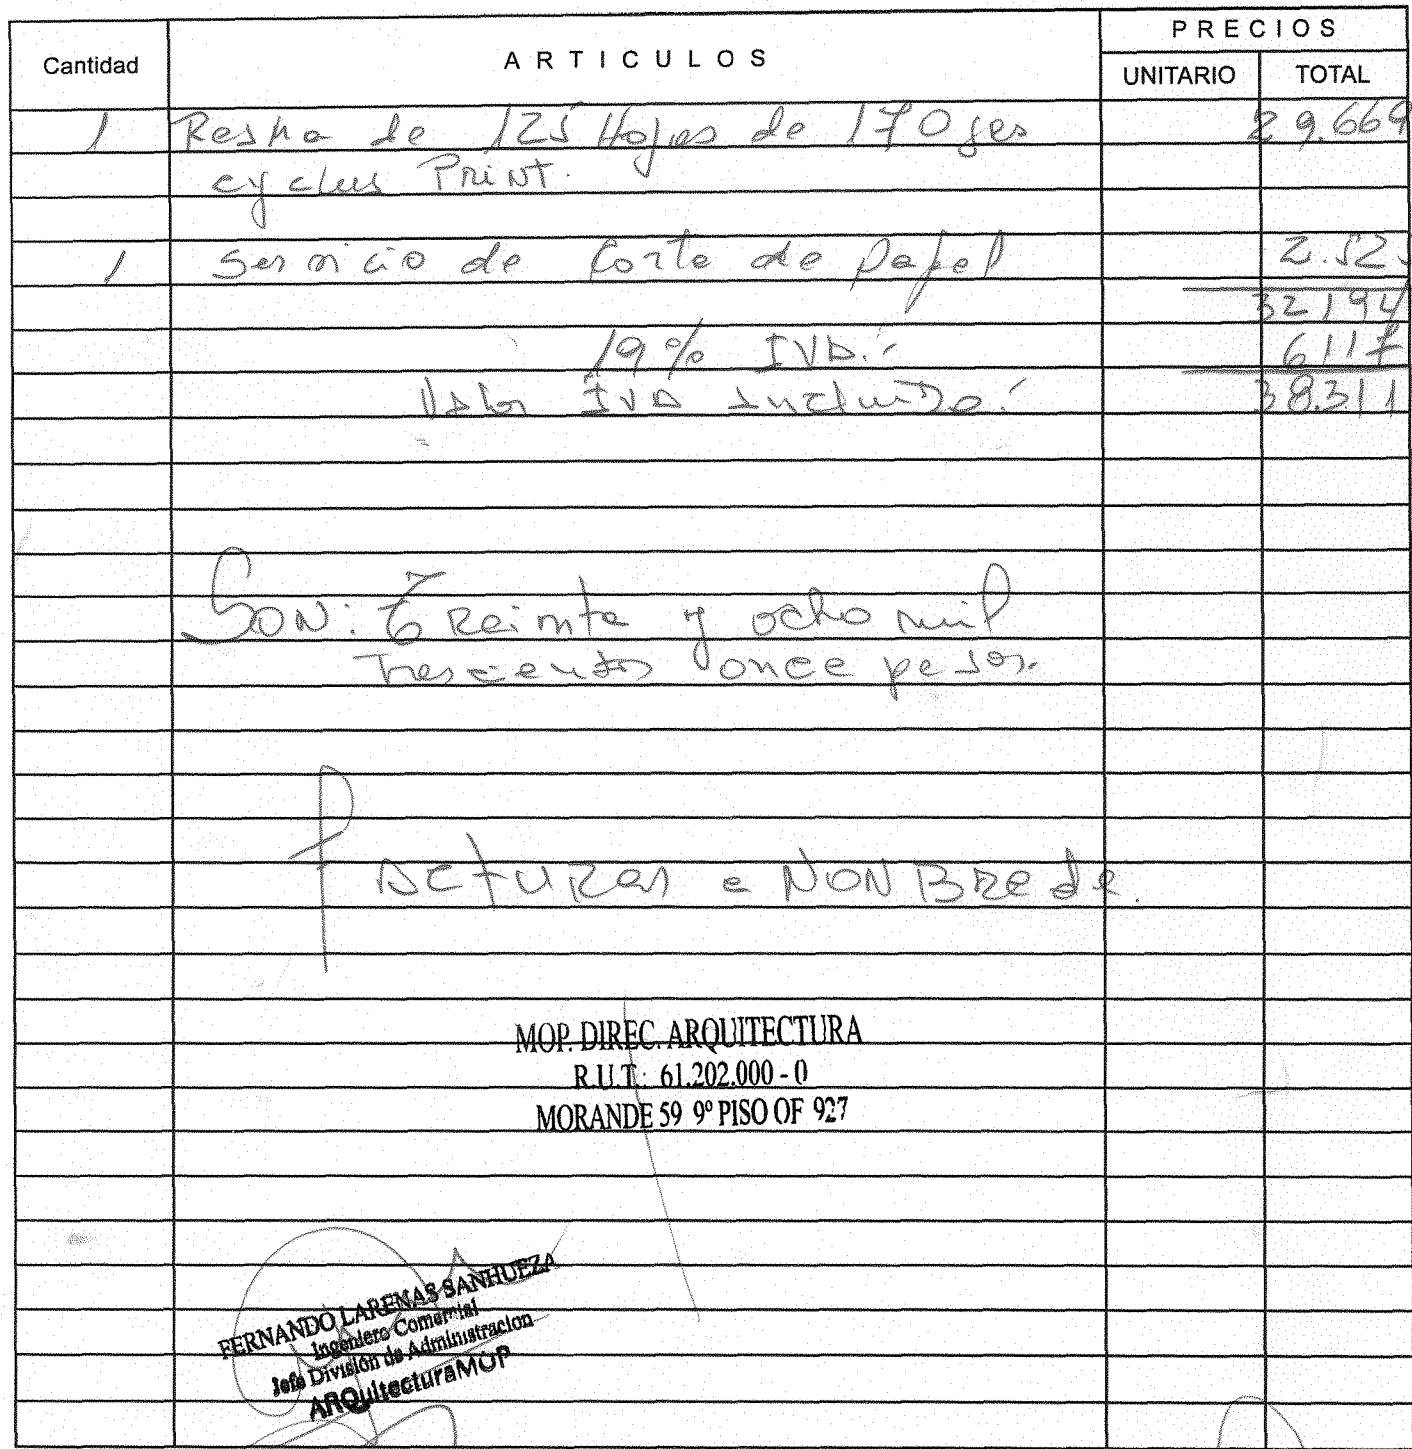 PRECIOS
Cantidad ARTICULOS UNITARIO TOTAL
1 Resma de 125 Hojas de 170 grs 29.669
cyclus Print.
1 Servicio de Corte de papel 2.52
32194
19% IVA.- 6117
Valor IVA Incluido.- 38.311
SON: Treinta y ocho mil
Trescientos once pesos.
FActurar a NONBRe de
MOP. DIREC. ARQUITECTURA
R.U.T.: 61.202.000 - 0
MORANDE 59 9º PISO OF 927
FERNANDO LARENAS SANHUEZA
Ingeniero Comercial
Jefe División de Administracion
ARQuitecturaMOP